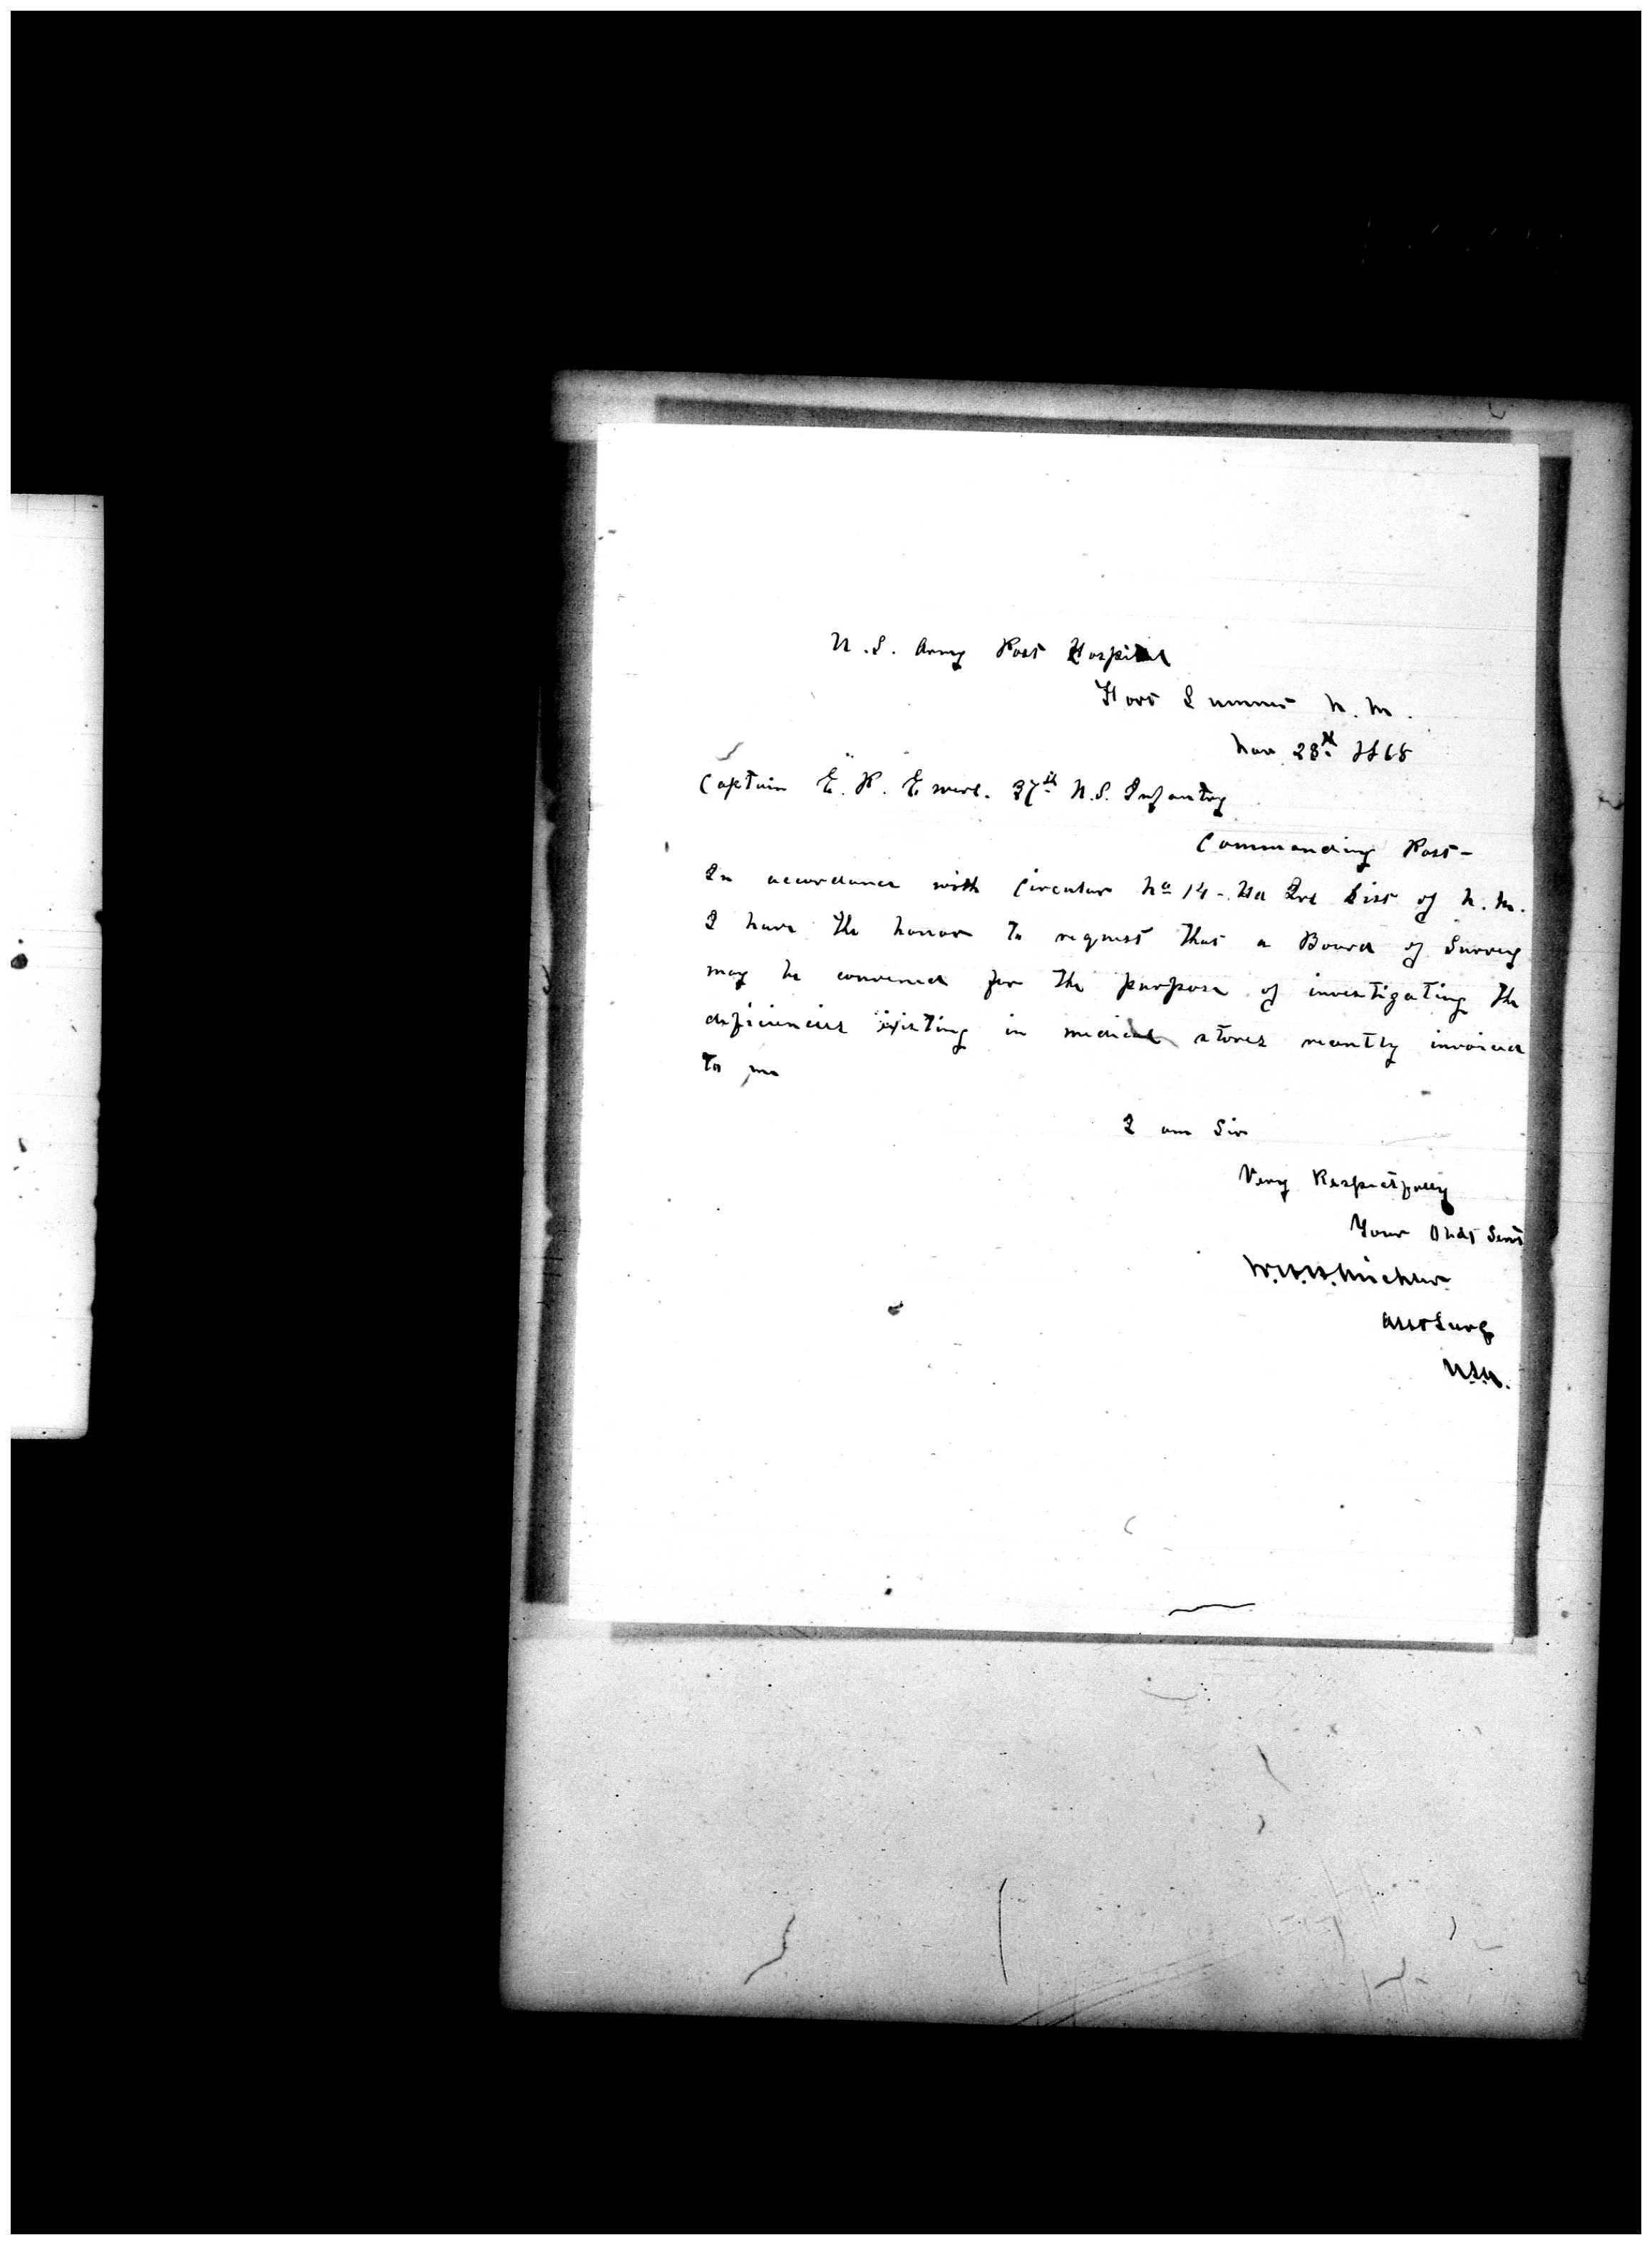 U.S. Army Post Hospital
Fort Sumner N.M.
Nov 28th 1868
Captain E. R. 37th U.S. Infantry
Commanding Post-
In accordance with Circular No 14 - Hd Dist of N.M.
I have the honor to request that a Board of Survey
may be convened for the purpose of investigating the
deficiencies existing in medical stores recently invoiced
to me
I am Sir
Very Respectfully
Your Obdt Servt
Asst Surg
U.S.A.